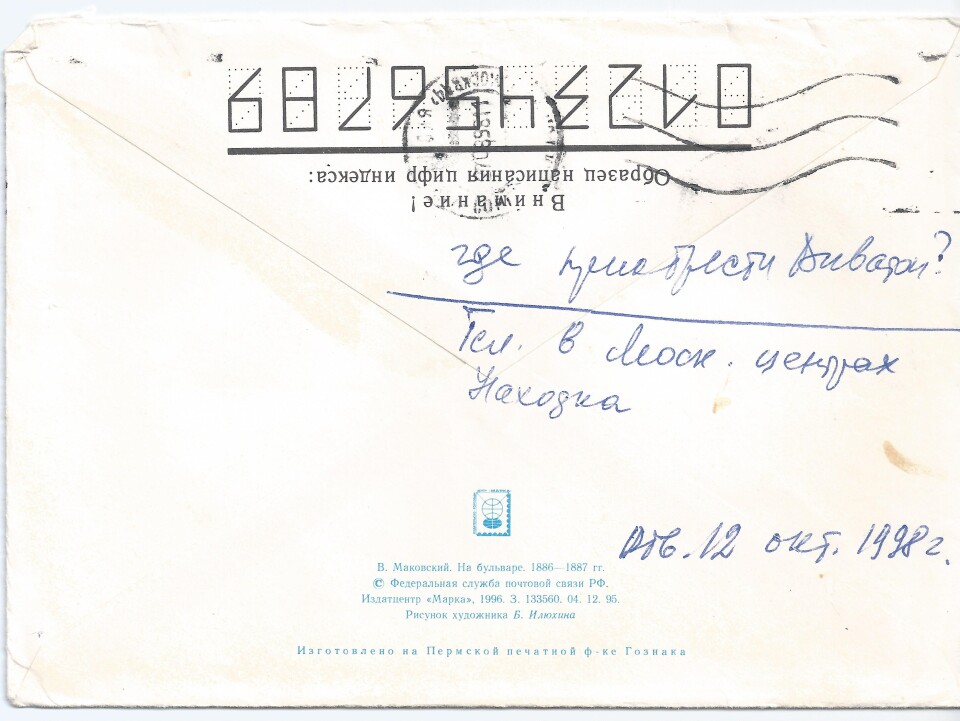 0123456789
Образец написания цифр индекса:
Внимание!
где приобрести Диватон?
Тел. в Моск. центрах
Находка
Отв. 12 окт. 1998 г.
В. Маковский. На бульваре. 1886—1887 гг.
© Федеральная служба почтовой связи РФ.
Издатцентр «Марка», 1996. З. 133560. 04. 12. 95.
Рисунок художника Б. Илюхина
Изготовлено на Пермской печатной ф-ке Гознака